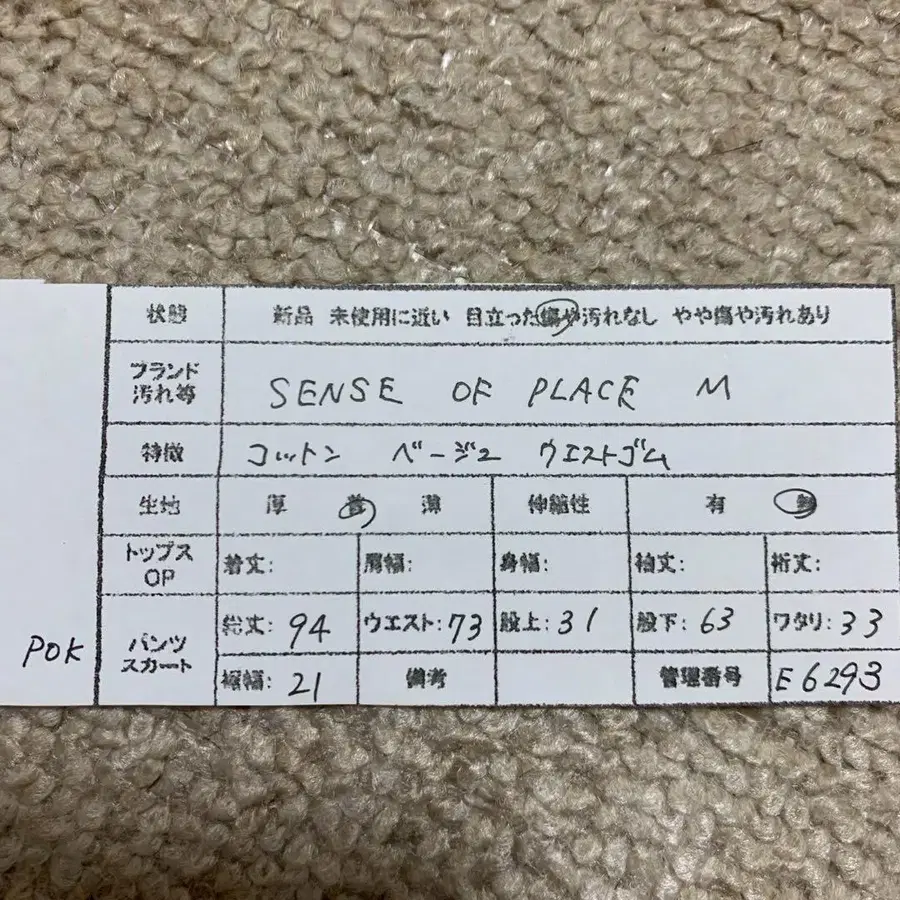 状態 新品 未使用に近い 目立った傷や汚れなし やや傷や汚れあり
ブランド
汚れ等
SENSE OF PLACE M
特徴 コットン ベージュ ウエストゴム
生地 厚 普 薄 伸縮性 有 無
トップス
OP
着丈: 肩幅: 身幅: 袖丈: 裄丈:
パンツ
スカート
総丈: 94 ウエスト: 73 股上: 31 股下: 63 ワタリ: 33
裾幅: 21 備考 管理番号 E6293
POK